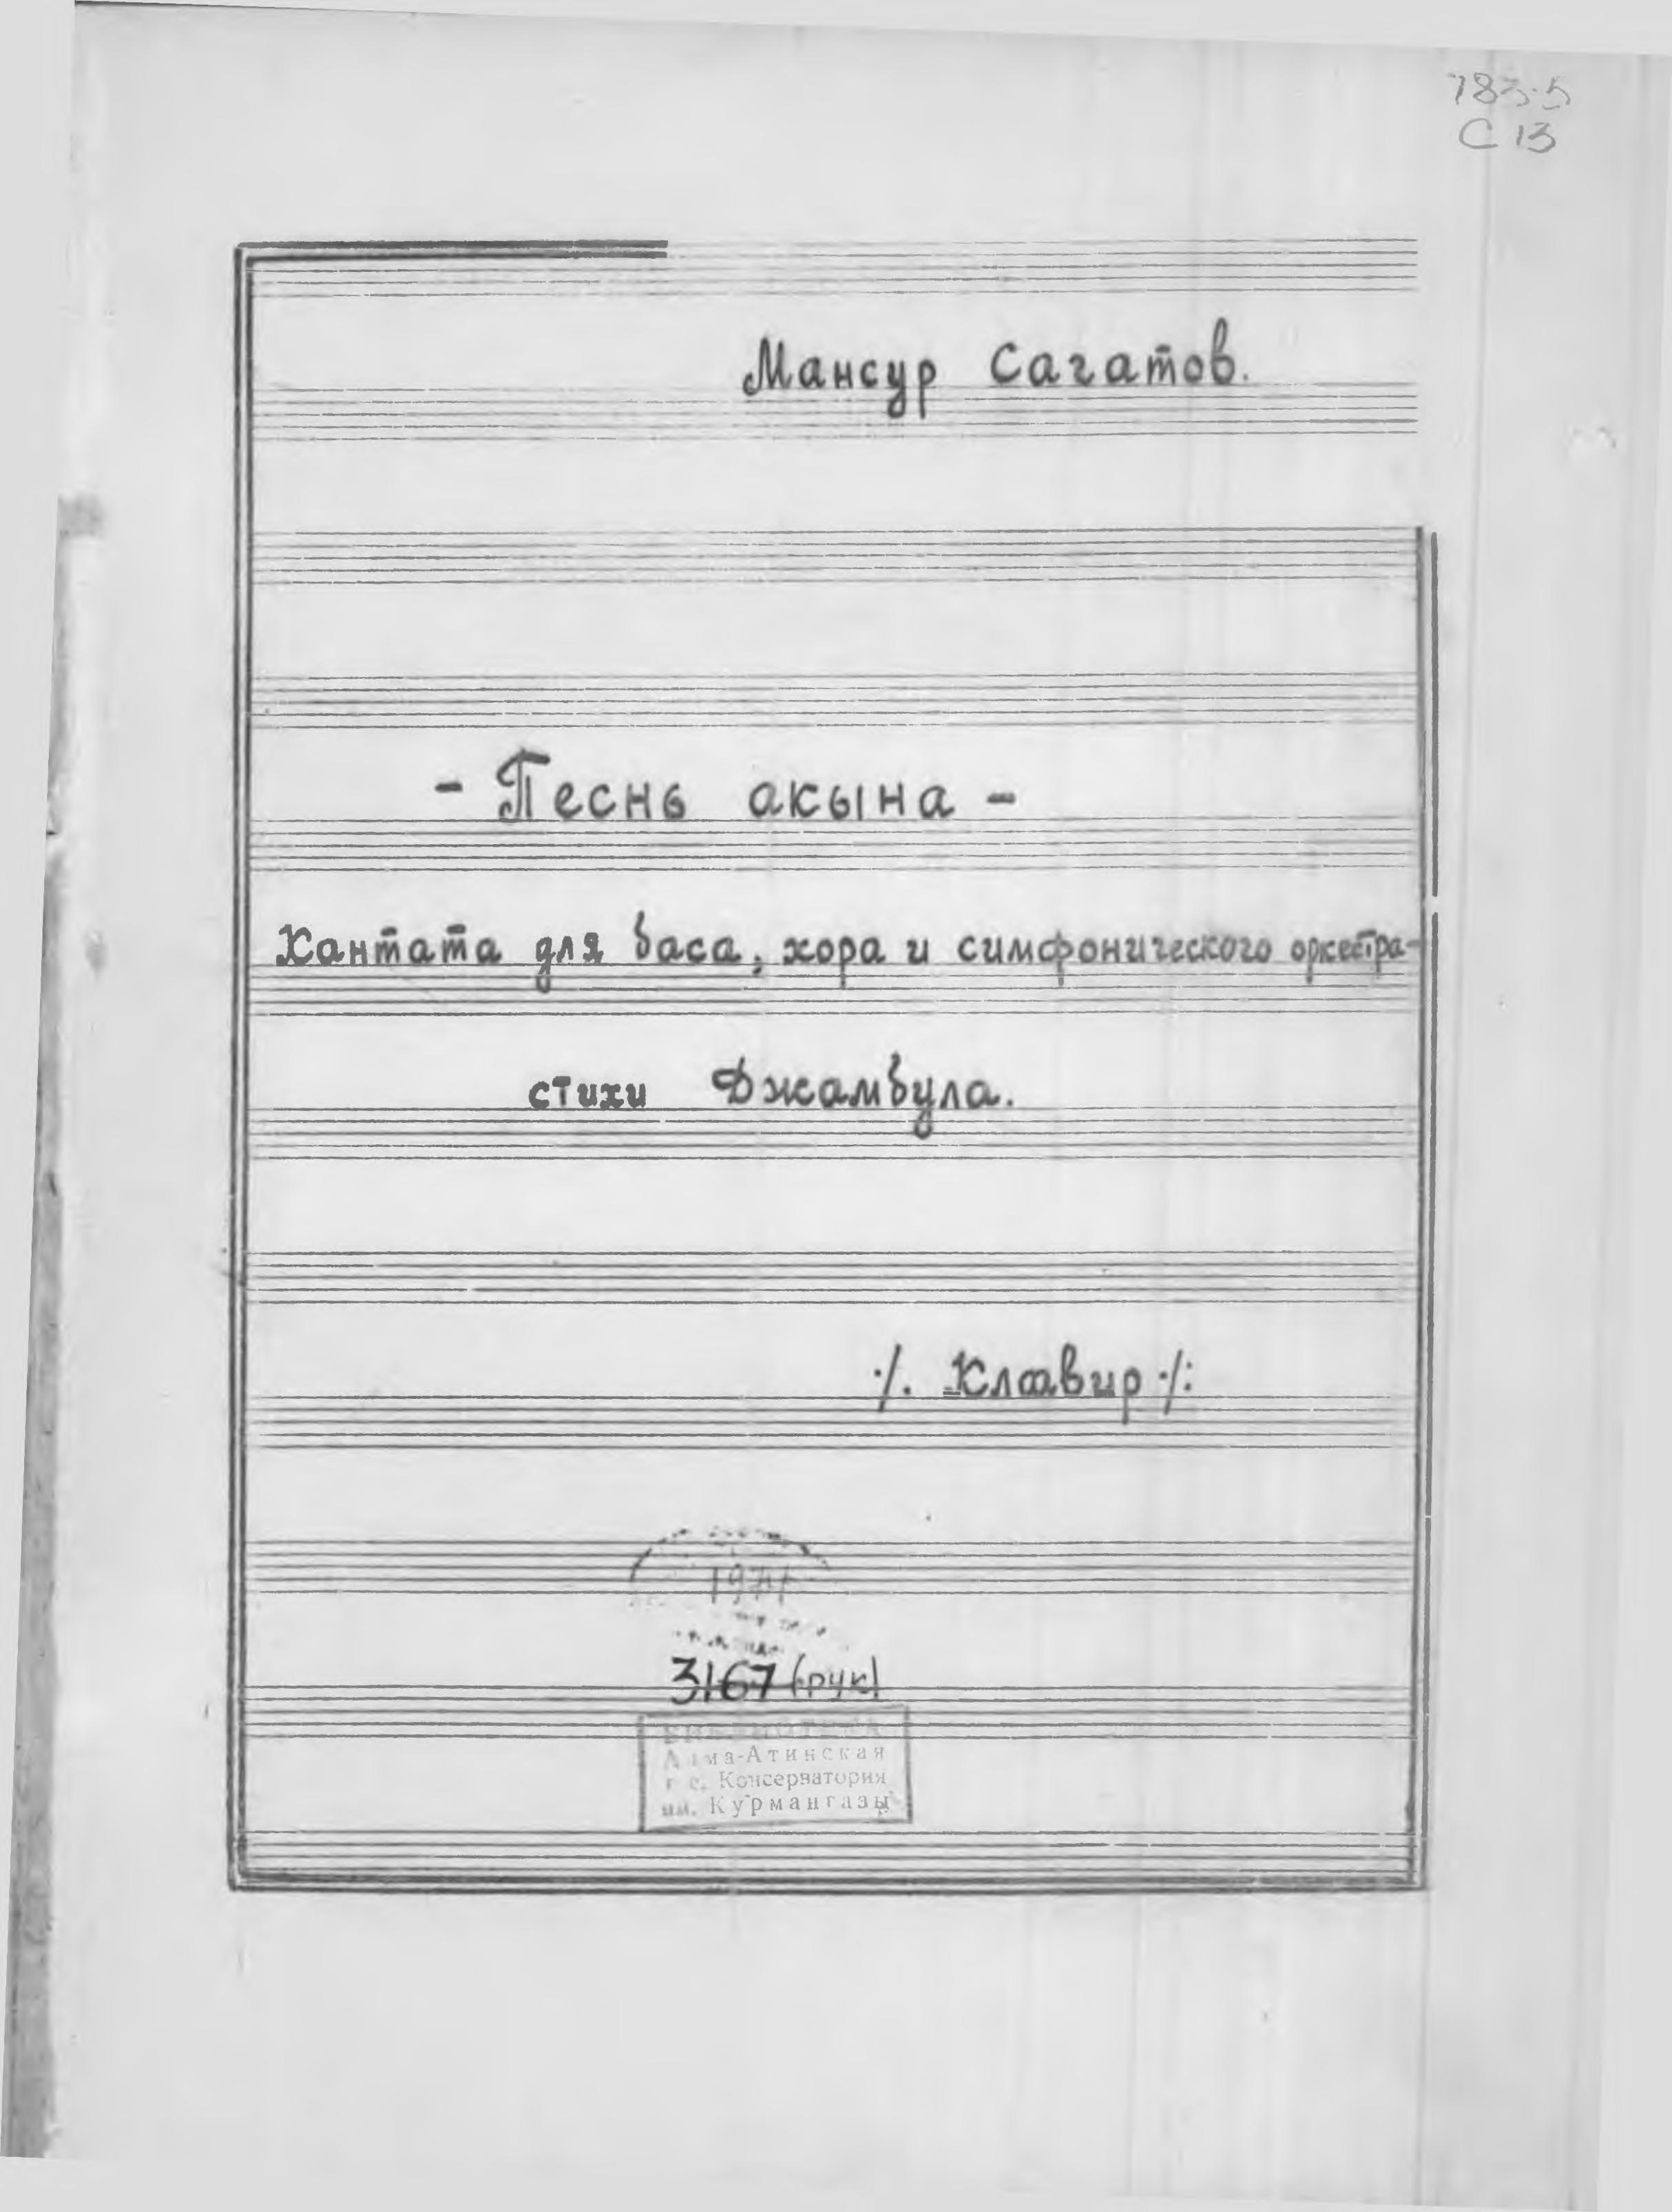 783.5
С 13
Мансур Сагатов.
- Песнь акына -
Кантата для баса, хора и симфонического оркестра-
стихи Джамбула.
·/. Клавир ·/:
3167 (рук)
БИБЛИОТЕКА
Алма-Атинская
гос. Консерватория
им. Курмангазы